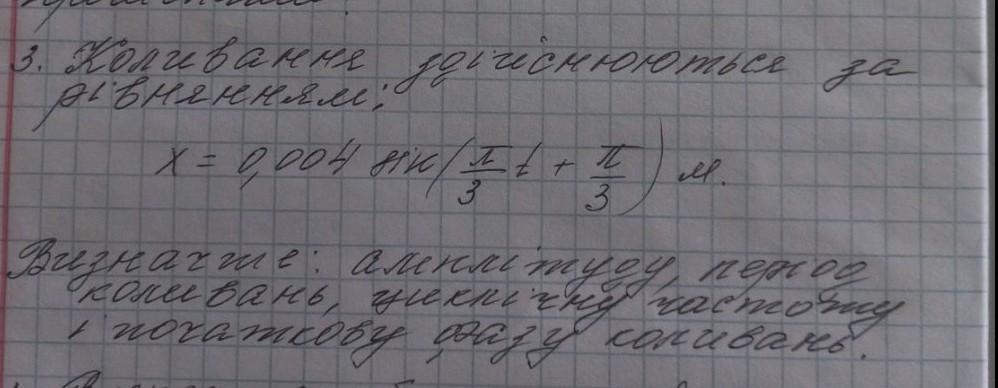 3. Коливання здійснюються за
рівнянням:
x = 0,004 sin(π/3 t + π/3) м.
Визначте: амплітуду, період
коливань, циклічну частоту
і початкову фазу коливань.